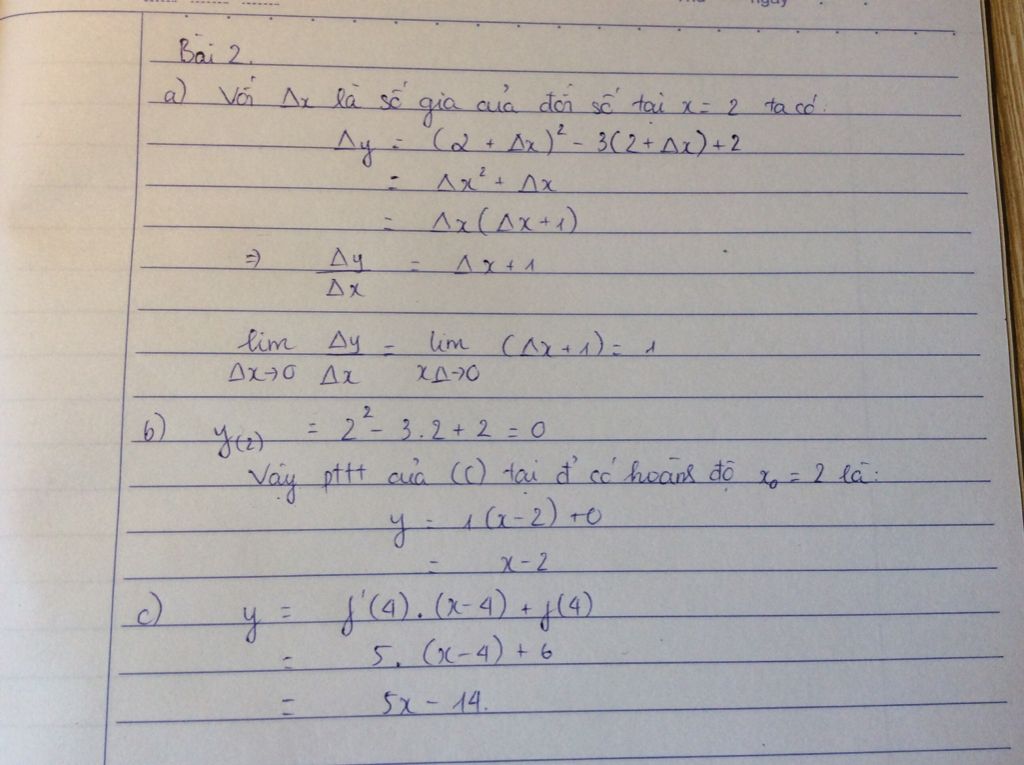 ngày
Bài 2.
a) Với Δx là số gia của đối số tại x = 2 ta có:
Δy = (2 + Δx)² - 3(2 + Δx) + 2
= Δx² + Δx
= Δx(Δx + 1)
⇒ Δy/Δx = Δx + 1
lim Δx→0 Δy/Δx = lim xΔ→0 (Δx + 1) = 1
b) y(2) = 2² - 3.2 + 2 = 0
Vậy pttt của (C) tại đ' có hoành độ x₀ = 2 là:
y = 1(x-2) + 0
= x - 2
c) y = f'(4).(x-4) + f(4)
= 5.(x-4) + 6
= 5x - 14.